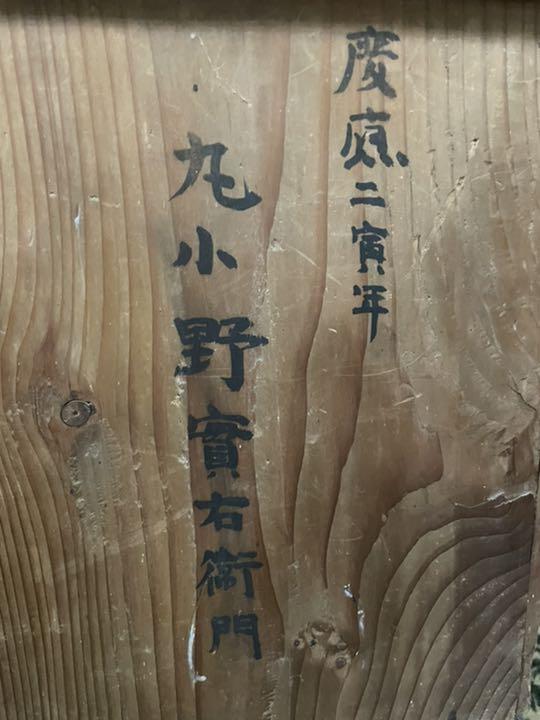 慶應二寅年
丸小野實右衛門